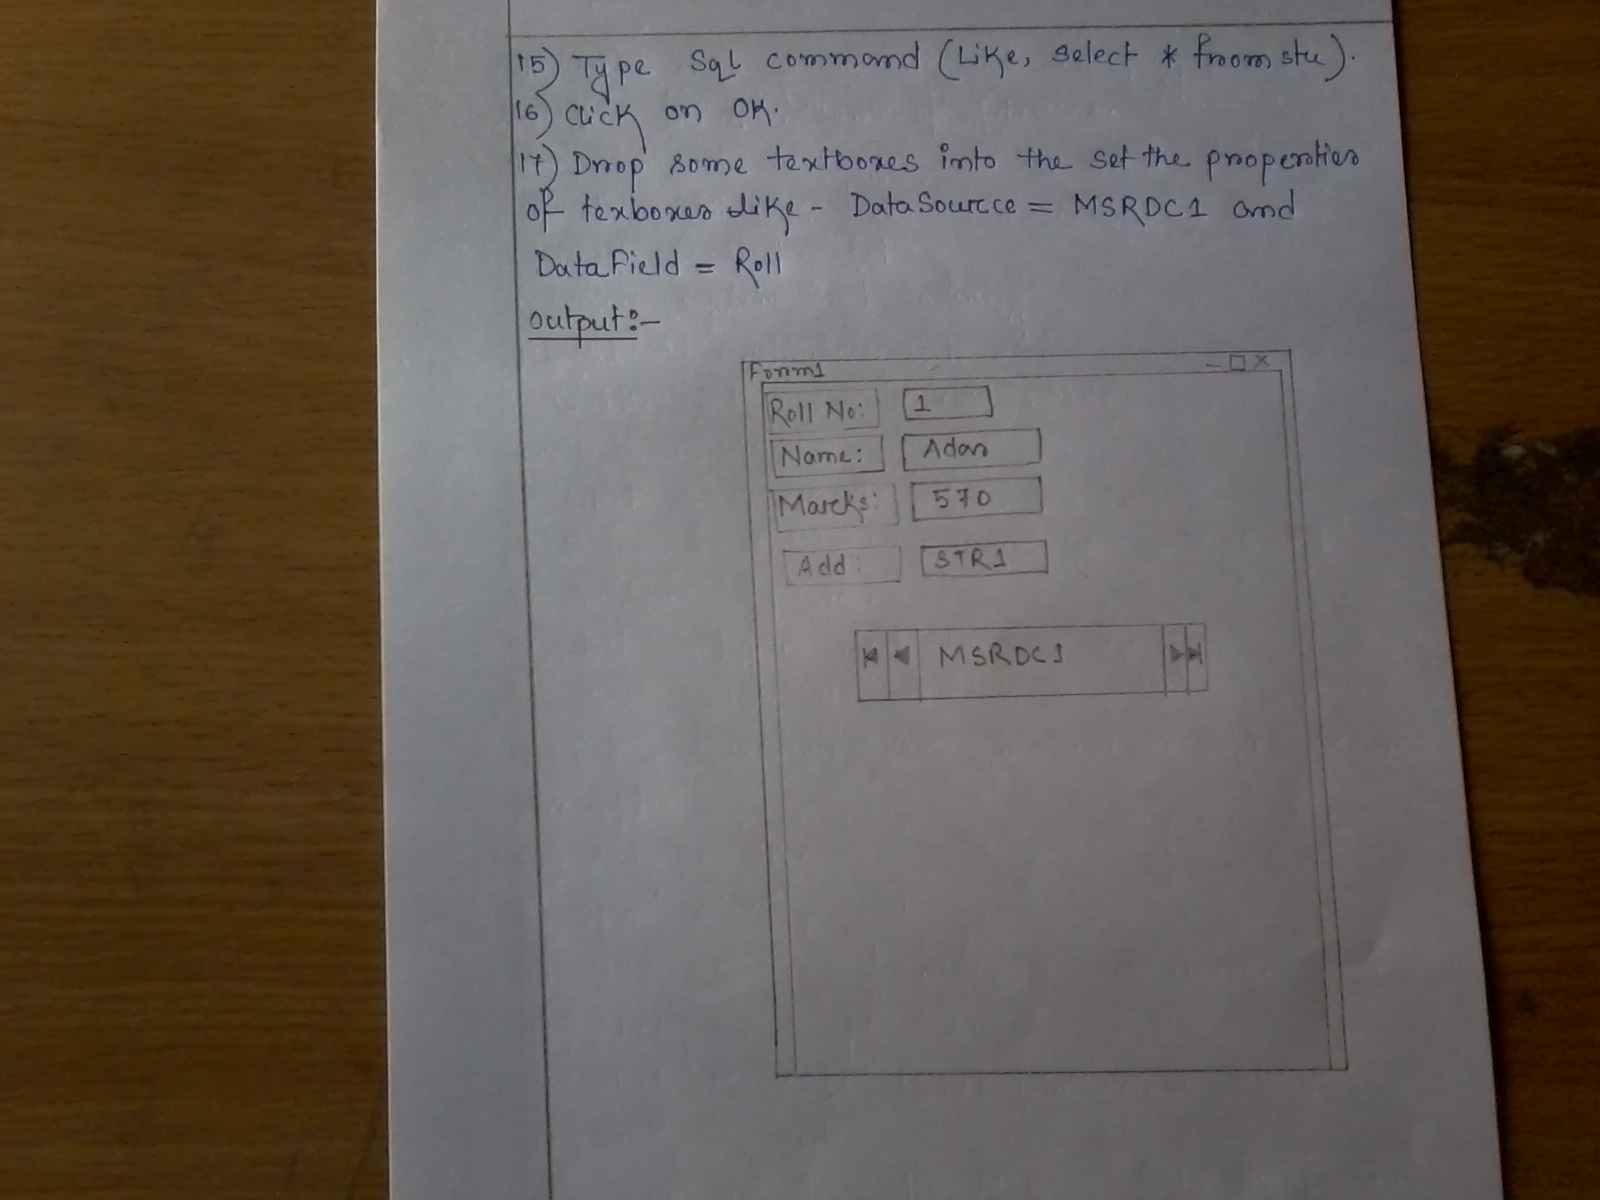 15) Type Sql command (Like, select * from stu).
16) Click on OK.
17) Drop some textboxes into the set the properties
of texboxes like - DataSource = MSRDC1 and
DataField = Roll
output:-
Form1
Roll No: 1
Name: Adas
Marks: 570
Add: STR1
MSRDC1